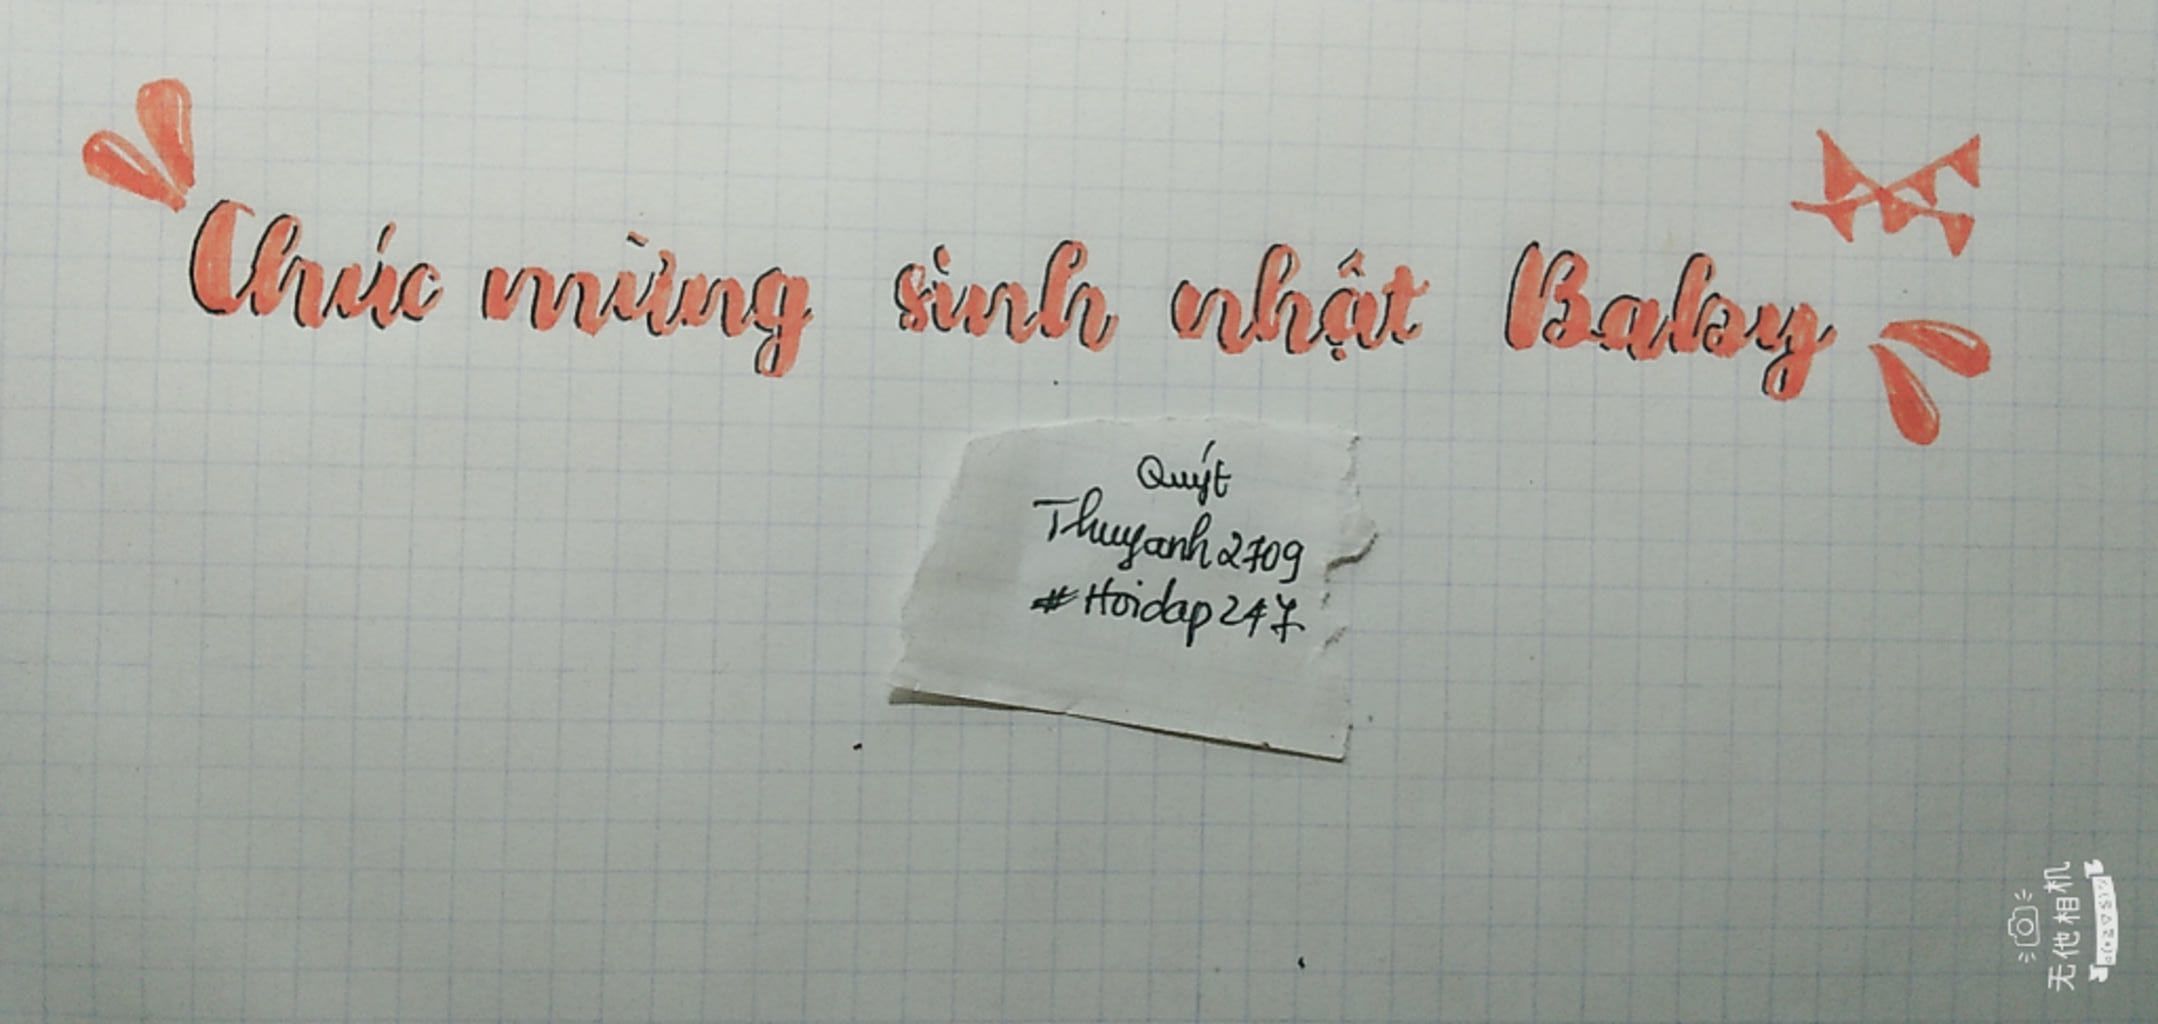 Chúc mừng sinh nhật Baby
Quýt
Thuyanh2709
#Hoidap247
无他相机